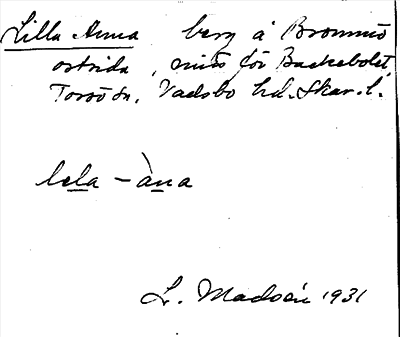 Lilla Anna berg å Brommö
ostsida, mitt för Backebolet,
Torsö sn, Vadsbo hd. Skar. l.
lela – àna
L. Madsén 1931